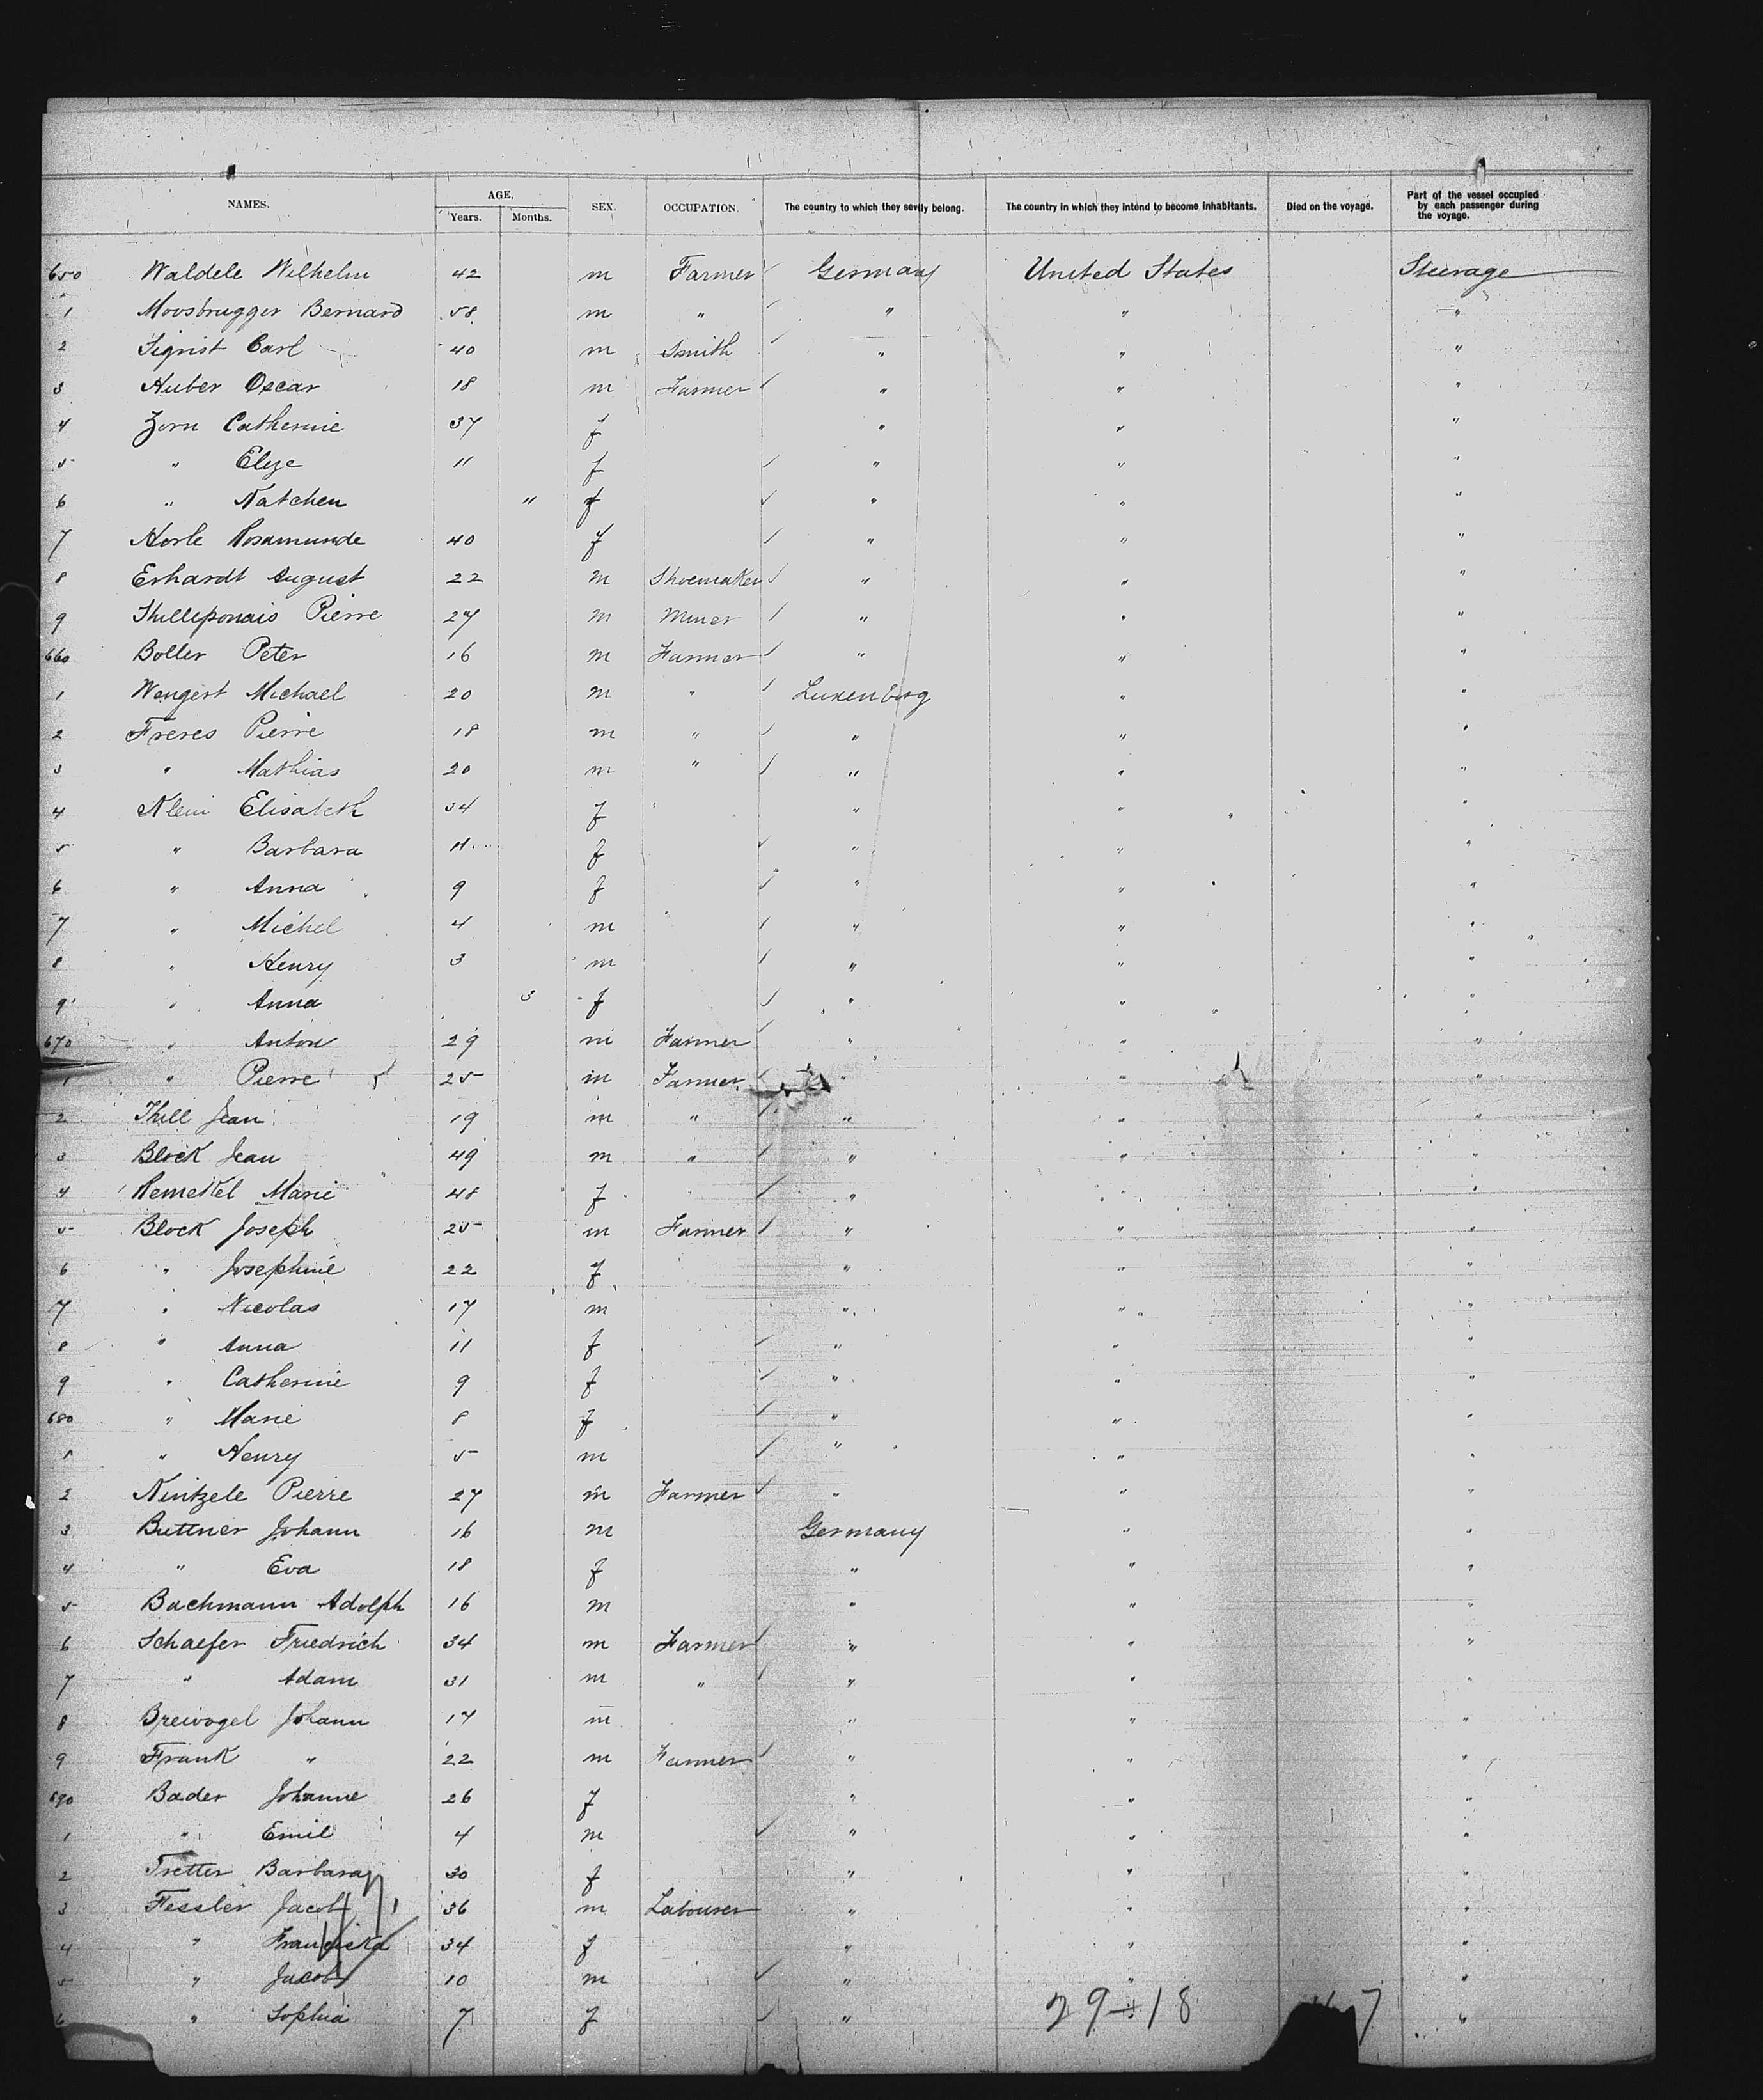 NAMES. AGE. SEX. OCCUPATION. The country to which they sevely belong. The country in which they intend to become inhabitants. Died on the voyage. Part of the vessel occupied by each passenger during the voyage.
Years. Months.
650 Waldele Wilhelm 42 m Farmer Germany United States Steerage
1 Moosbrugger Bernard 58 m " " " "
2 Sigrist Carl 40 m Smith " " "
3 Huber Oscar 18 m Farmer " " "
4 Zorn Catherine 37 f " " "
5 " Elize 11 f " " "
6 " Natchen " f " " "
7 Horle Rosamunde 40 f " " "
8 Erhardt August 22 m Shoemaker " " "
9 Thilleponais Pierre 27 m Miner " " "
660 Boller Peter 16 m Farmer " " "
1 Wengert Michael 20 m " Luxenburg " "
2 Freres Pierre 18 m " " " "
3 " Mathias 20 m " " " "
4 Klein Elisabeth 34 f " " "
5 " Barbara 11 f " " "
6 " Anna 9 f " " "
7 " Michel 4 m " " "
8 " Henry 3 m " " "
9 " Anna 3 f " " "
670 " Anton 29 m Farmer " " "
1 " Pierre 25 m Farmer " " "
2 Thill Jean 19 m " " " "
3 Block Jean 49 m " " " "
4 Remekel Marie 48 f " " "
5 Block Joseph 25 m Farmer " " "
6 " Josephine 22 f " " "
7 " Nicolas 17 m " " "
8 " Anna 11 f " " "
9 " Catherine 9 f " " "
680 " Marie 8 f " " "
1 " Henry 5 m " " "
2 Kintzele Pierre 27 m Farmer " " "
3 Buttner Johann 16 m Germany " "
4 " Eva 18 f " " "
5 Bachmann Adolph 16 m " " "
6 Schaefer Friedrich 34 m Farmer " " "
7 " Adam 31 m " " " "
8 Breivogel Johann 17 m " " "
9 Frank " 22 m Farmer " " "
690 Bader Johanne 26 f " " "
1 " Emil 4 m " " "
2 Tretter Barbara 30 f " " "
3 Fessler Jacob 36 m Labourer " " "
4 " Franciska 34 f " " "
5 " Jacob 10 m " " "
6 " Sophia 7 f " "
29+18 7